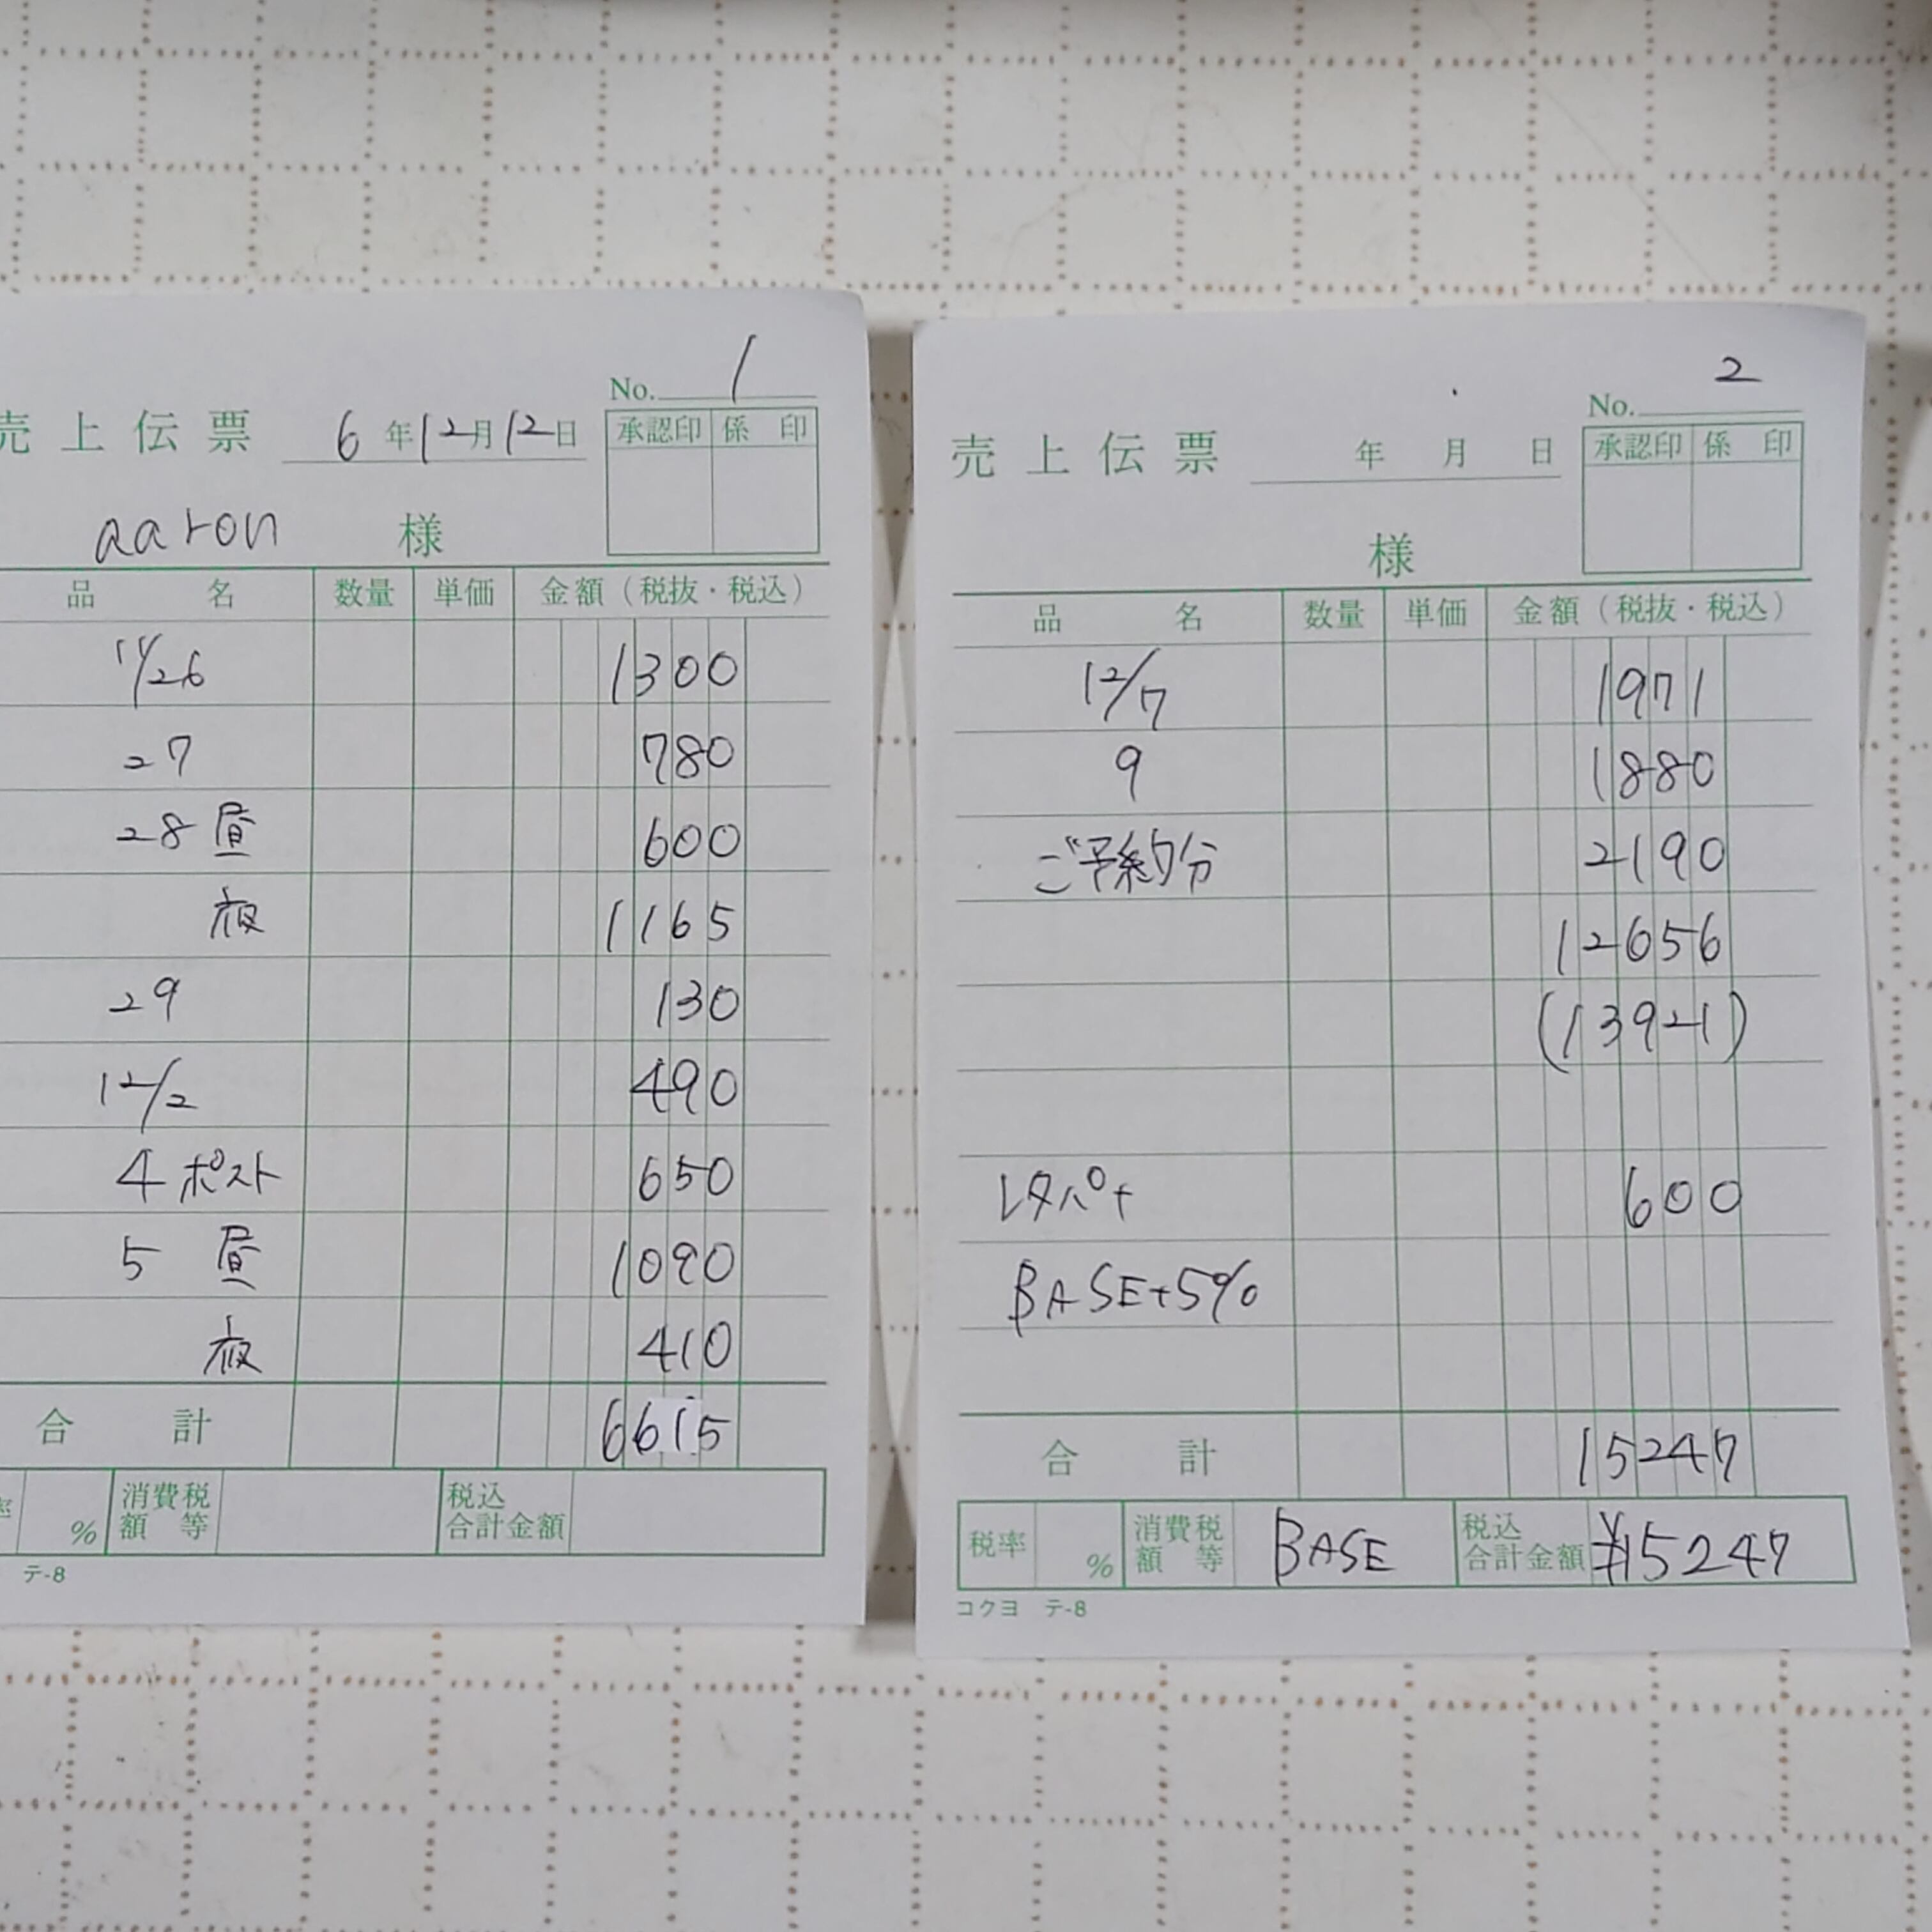 No. 1
売上伝票 6年12月12日
承認印 係印
aaron 様
品名 数量 単価 金額（税抜・税込）
11/26 1300
27 780
28 昼 600
夜 1165
29 130
12/2 490
4 ポスト 650
5 昼 1090
夜 410
合計 6615
率 % 消費税額等 税込合計金額
テ-8
2
No.
売上伝票 年 月 日
承認印 係印
様
品名 数量 単価 金額（税抜・税込）
12/7 1971
9 1880
ご予約分 2190
12656
(13921)
レタパ+ 600
BASE+5%
合計 15247
税率 % 消費税額等 BASE 税込合計金額 ¥15247
コクヨ テ-8